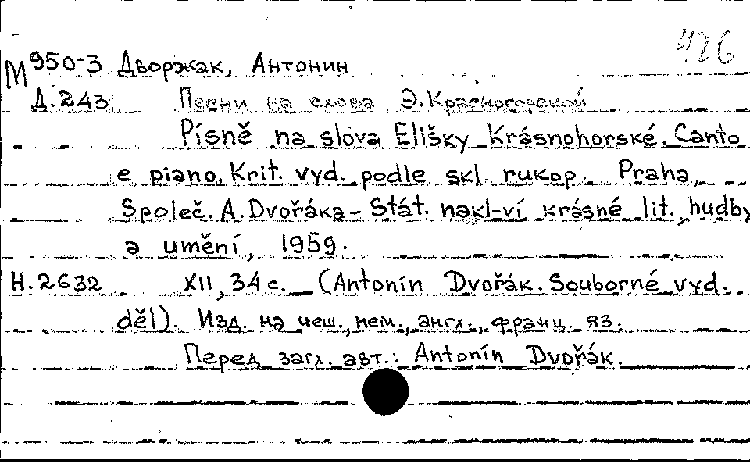 426
М 950-3 Дворжак, Антонин
Д.243 Песни на слова Э.Красногорской
Písně na slova Elišky Krásnohorské. Canto
e piano. Krit. vyd. podle skl. rukop. Praha,
Společ. A. Dvořáka - Stát. nakl-ví krásné lit., hudby
a umění, 1959.
Н.2632 XII, 34 с. (Antonín Dvořák. Souborné vyd.
děl). Изд. на чеш., нем., англ., франц. яз.
Перед загл. авт.: Antonín Dvořák.